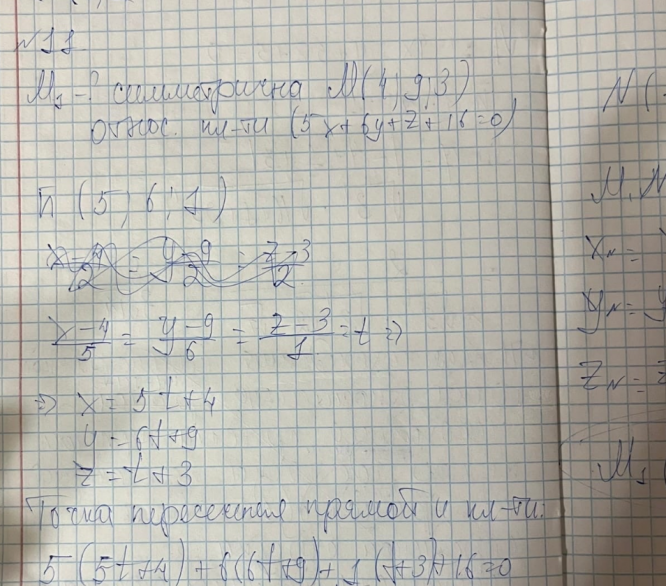 №11
M₁ -? симметрична M(4; 9; 3)
относ. пл-ти (5x+6y+z+16=0)
n (5; 6; 1)
x-4/2 = y-9/2 = z-3/2
x-4/5 = y-9/6 = z-3/1 = t ⇒
⇒ x = 5t+4
y = 6t+9
z = t+3
Точка пересечения прямой и пл-ти:
5(5t+4)+6(6t+9)+1(t+3)+16=0
N(
M, N
x_N =
y_N = y
z_N = z
M₁ (